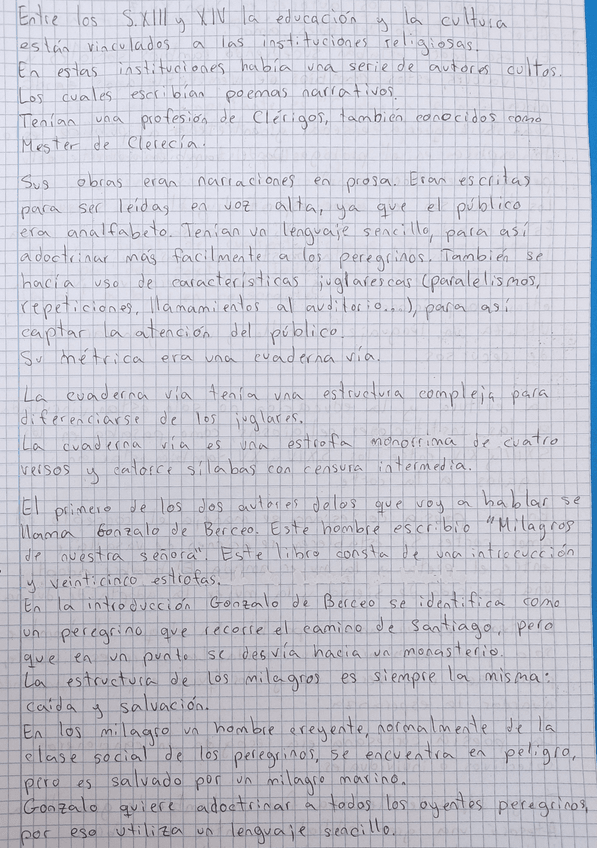 Entre los S.XIII y XIV la educación y la cultura
están vinculados a las instituciones religiosas.
En estas instituciones había una serie de autores cultos.
Los cuales escribían poemas narrativos.
Tenían una profesión de Clérigos, tambien conocidos como
Mester de Clerecía.
Sus obras eran narraciones en prosa. Eran escritas
para ser leídas en voz alta, ya que el público
era analfabeto. Tenían un lenguaje sencillo, para así
adoctrinar más facilmente a los peregrinos. También se
hacía uso de características juglarescas (paralelismos,
repeticiones, llamamientos al auditorio...), para así
captar la atención del público.
Su métrica era una cuaderna vía.
La cuaderna vía tenía una estructura compleja para
diferenciarse de los juglares.
La cuaderna vía es una estrofa monorrima de cuatro
versos y catorce sílabas con censura intermedia.
El primero de los dos autores delos que voy a hablar se
llama Gonzalo de Berceo. Este hombre escribio "Milagros
de nuestra señora". Este libro consta de una introcucción
y veinticinco estrofas.
En la introducción Gonzalo de Berceo se identifica como
un peregrino que recorre el camino de Santiago, pero
que en un punto se desvía hacia un monasterio.
La estructura de los milagros es siempre la misma:
caída y salvación.
En los milagro un hombre creyente, normalmente de la
clase social de los peregrinos, se encuentra en peligro,
pero es salvado por un milagro marino.
Gonzalo quiere adoctrinar a todos los oyentes peregrinos,
por eso utiliza un lenguaje sencillo.